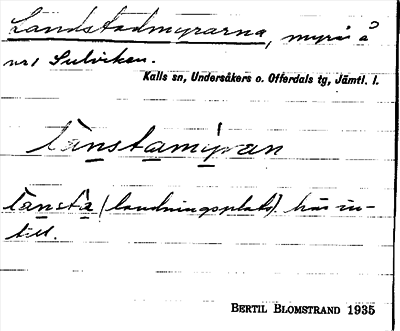 Landstadmyrarna, myrar å
nr 1 Sulviken.
Kalls sn, Undersåkers o. Offerdals tg, Jämtl. l.
lànstamýran
lànstà (landningsplats) här in-
till.
BERTIL BLOMSTRAND 1935